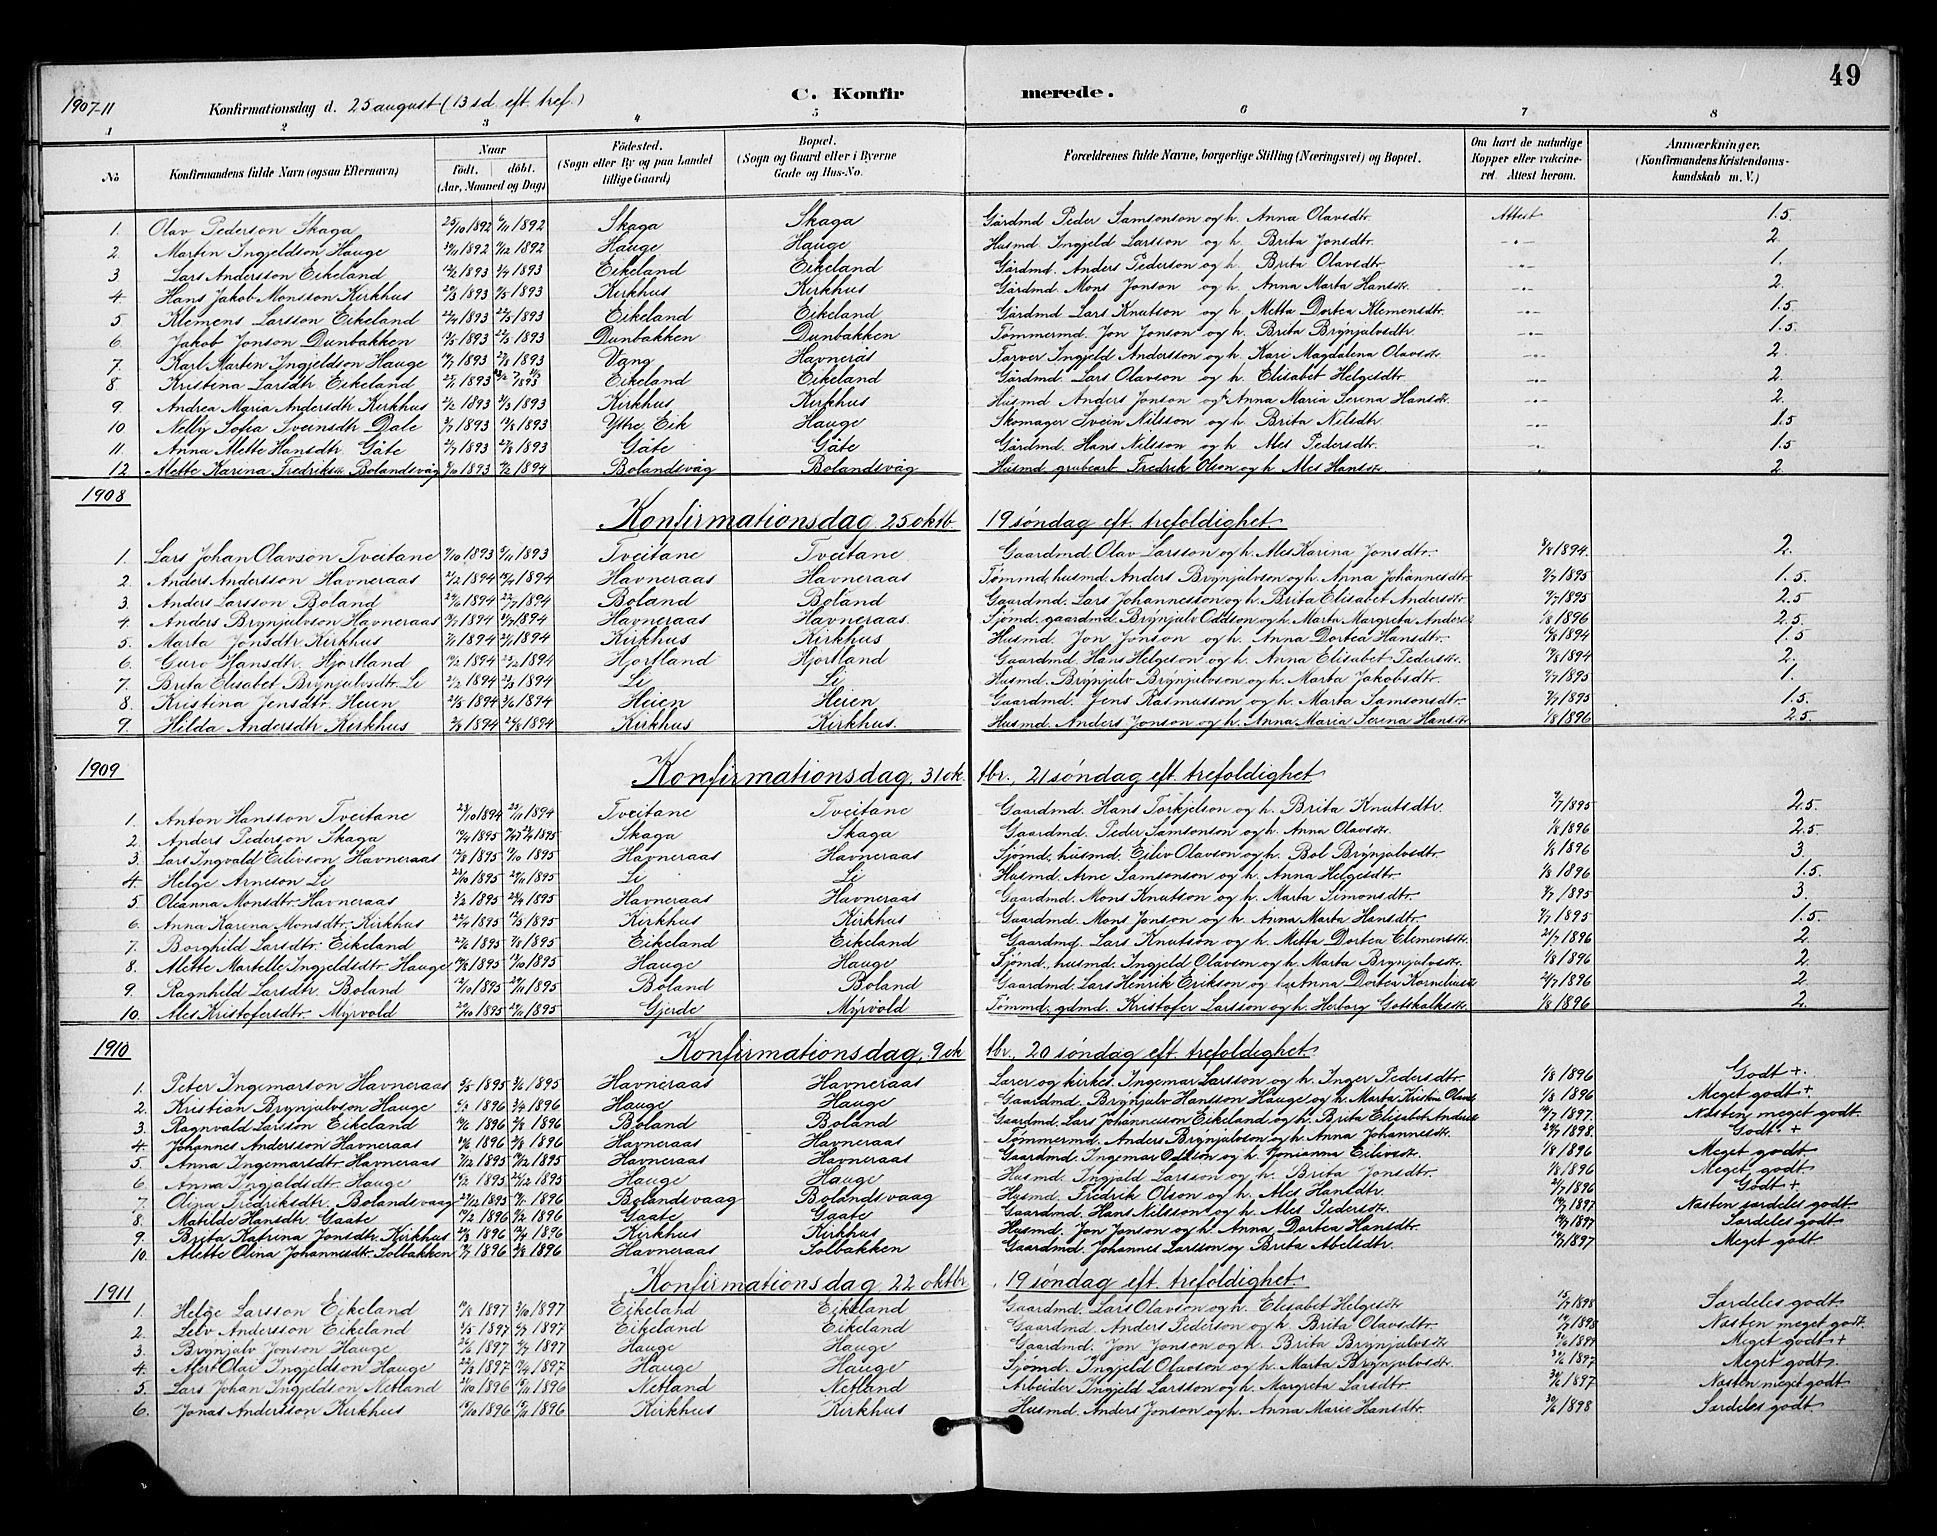 49
1907-11 Konfirmationsdag d. 25 august (13 sd. eft. tref.) C. Konfirmerede.
1 2 3 4 5 6 7 8
No Konfirmandens fulde Navn (ogsaa Efternavn) Naar født. døbt. (Aar, Maaned og Dag) Fødested. (Sogn eller By og paa Landet tillige Gaard) Bopæl. (Sogn og Gaard eller i Byerne Gade og Hus-No. Forældrenes fulde Navne, borgerlige Stilling (Næringsvei) og Bopæl. Om havt de naturlige Kopper eller vakcineret. Attest herom. Anmærkninger. (Konfirmandens Kristendomskundskab m. V.)
1. Olav Pederson Skaga 25/10 1892 6/11 1892 Skaga Skaga Gårdmd Peder Samsonson og h. Anna Olavsdtr. Attest 1.5
2 Martin Ingjeldson Hauge 1892 1892 Hauge Hauge Husmd. Ingjeld Larsson og h. Brita Jonsdtr. -"- 2
3 Lars Andersson Eikeland 1893 1893 Eikeland Eikeland Gårdmd. Anders Pederson og h. Brita Olavsdtr -"- 1.
4. Hans Jakob Monsson Kirkhus 1893 1893 Kirkhus Kirkhus Gårdmd. Mons Jonson og h. Anna Marta Hansdtr. -"- 2.
5 Klemens Larsson Eikeland 1893 1893 Eikeland Eikeland Gårdmd Lars Knutson og h. Metta Dortea Klemensdtr. -"- 1.5
6. Jakob Jonson Dunbakken 1893 1893 Dunbakken Dunbakken Tømmermd. Jon Jonson og h. Brita Brynjulvsdtr -"- 1.5.
7. Karl Martin Ingjeldson Hauge 1893 1893 Vang Havnerås Farver Ingjeld Andersson og h. Kari Magdalena Olavsdtr. -"- 2.
8. Kristina Larsdtr Eikeland 1893 1893 Eikeland Eikeland Gårdmd Lars Olavson og h. Elisabet Helgesdtr. -"- 2.
9. Andrea Maria Andersdtr Kirkhus 1893 1893 Kirkhus Kirkhus Husmd Anders Jonson og h. Anna Maria Serena Hansdtr. -"- 2.
10 Nelly Sofia Sveinsdtr Dale 1893 1893 Ytre Eik Hauge Skomager Svein Nilsson og h. Brita Nilsdtr -"- 1.5
11. Anna Mette Hansdtr Gåte 1893 1893 Gåte Gåte Gårdmd. Hans Nilsson og h. Ales Pedersdtr. -"- 1.5
12 Alette Karina Fredriksdtr. Bolandsvåg 1893 1894 Bolandsvåg Bolandsvåg Husmd grubearb. Fredrik Olson og h. Ales Hansdtr. 2
1908 Konfirmationsdag 25 oktb. 19 søndag eft. trefoldighet
1. Lars Johan Olavson Tveitane 1893 1893 Tveitane Tveitane Gaardmd. Olav Larsson og h. Ales Karina Jonsdtr. 1894. 2.
2. Anders Andersson Havneraas 1894 1894 Havneraas Havneraas Tømmd, husmd. Anders Brynjulvson og h. Anna Johannesdtr 1895 1.5.
3. Anders Larsson Boland 1894 1894 Boland Boland Gaardmd. Lars Johannesson og h. Brita Elisabet Andersdtr. 1895 2.5
4. Anders Brynjulvson Havneraas 1894 1894 Havneraas Havneraas. Sjømd. gaardmd. Brynjulv Oddson og h. Marta Margreta Andersdtr. 1896 2.5.
5. Marta Jonsdtr Kirkhus 1894 1894 Kirkhus Kirkhus Husmd. Jon Jonson og h. Anna Dortea Hansdtr. 1894 1.5
6. Guro Hansdtr. Hjortland 1894 1894 Hjortland Hjortland Gaardmd. Hans Helgeson og h. Anna Elisabet Pedersdtr. 1894 2.
7. Brita Elisabet Brynjulvsdtr. Li 1894 1894 Li Li Husmd. Brynjulv Brynjulvson og h. Marta Jakobsdtr. 1895 1.
8. Kristina Jensdtr. Heien 1894 1894 Heien Heien Gaardmd. Jens Rasmusson og h. Marta Samsonsdtr. 1895 1.5.
9. Hilda Andersdtr Kirkhus 1894 1894 Kirkhus Kirkhus. Husmd. Anders Jonson og h. Anna Maria Serena Hansdtr 1/8 1896 2.5.
1909 Konfirmationsdag, 31 oktbr., 21 søndag eft. trefoldighet
1. Anton Hansson Tveitane 1894 1894 Tveitane Tveitane Gaardmd. Hans Torkjelson og h. Brita Knutsdtr. 1895 2.5.
2. Anders Pederson Skaga 1895 1895 Skaga Skaga Gaardmd. Peder Samsonson og h. Anna Olavsdtr. 1/8 1896 2.5.
3. Lars Ingvald Eilivson Havneraas 1895 1895 Havneraas Havneraas Sjømd, husmd. Eiliv Olavson og h. Bol Brynjulvsdtr. 1/8 1896 3.
4. Helge Arneson Li 1895 1895 Li Li Husmd. Arne Samsonson og h. Anna Helgesdtr. 1/8 1896 1.5.
5. Olianna Monsdtr. Havneraas 1895 1895 Havneraas Havneraas Gaardmd. Mons Knutson og h. Marta Simonsdtr. 1895 3
6. Anna Karina Monsdtr. Kirkhus 1895 1895 Kirkhus Kirkhus Gaardmd. Mons Jonson og h. Anna Marta Hansdtr. 1895 1.5.
7. Borghild Larsdtr. Eikeland 1895 1895 Eikeland Eikeland Gaardmd. Lars Knutson og h. Metta Dortea Clemensdtr. 1896 2.
8. Alette Martelle Ingjeldsdtr. Hauge 1895 1895 Hauge Hauge Sjømd., husmd. Ingjeld Olavson og h. Marta Brynjulvsdtr. 1/8 1896 2.
9. Ragnhild Larsdtr. Boland 1895 1895 Boland Boland Gaardmd. Lars Henrik Erikson og h. Anna Dortea Korneliusdtr 1896 2
10. Ales Kristofersdtr. Myrvold 1895 1895 Gjerde Myrvold Tømmd., gdmd. Kristofer Larsson og h. Herborg Gotskalksdtr. 1/8 1896 2.
1910 Konfirmationsdag, 9 oktbr., 20 søndag eft. trefoldighet.
1. Peter Ingemarson Havneraas 1895 1895 Havneraas Havneraas Lærer og kirkes. Ingemar Larsson og h. Inger Pedersdtr. 1/8 1896 Godt +.
2. Kristian Brynjulvson Hauge 1896 1896 Hauge Hauge Gaardmd. Brynjulv Hansson Hauge og h. Marta Kristina Olavsdtr 1/8 1896 Meget godt +
3. Ragnvald Larsson Eikeland 1896 1896 Boland Boland Gaardmd. Lars Johannesson Eikeland og h. Brita Elisabet Andersdtr 1897. Næsten meget godt.
4. Johannes Andersson Havneraas 1896 1896 Havneraas Havneraas Tømmermd. Anders Brynjulvson og h. Anna Johannesdtr. 1898. Godt +
5. Anna Ingemarsdtr. Havneraas 1895 1895 Havneraas Havneraas Gaardmd. Ingemar Oddson og h. Jonianna Eilivsdtr. 1/8 1896 Meget godt
6. Anna Ingjeldsdtr. Hauge 1895 1895 Hauge Hauge Husmd. Ingjald Larsson og h. Brita Jonsdtr. 1/8 1896 Meget godt.
7. Olina Fredriksdtr. Bolandsvaag 1895 1896 Bolandsvaag Bolandsvaag Husmd. Fredrik Olson og h. Ales Hansdtr. 1896 Godt +
8. Matilde Hansdtr. Gaate 1896 1896 Gaate Gaate Gaardmd. Hans Nilsson og h. Ales Pedersdtr. 1897 Næsten særdeles godt.
9. Brita Katrina Jonsdtr. Kirkhus 1896 1896 Kirkhus Kirkhus Husmd. Jon Jonson og h. Anna Dortea Hansdtr. 1897 Særdeles godt.
10. Alette Olina Johannesdtr. Solbakken 1896 1896 Havneraas Solbakken Gaardmd. Johannes Larsson og Brita Abelsdtr. 1897 Meget godt.
1911 Konfirmationsdag 22 oktbr. 19 søndag eft. trefoldighet.
1. Helge Larsson Eikeland 1897 1897 Eikeland Eikeland Gaardmd. Lars Olavson og h. Elisabet Helgesdtr 1898 Særdeles godt.
2. Selv Andersson Eikeland 1897 1897 Eikeland Eikeland Gaardmd. Anders Pederson og h. Brita Olavsdtr. 1898 Næsten meget godt.
3. Brynjulv Jonson Hauge 1897 1897 Hauge Hauge Gaardmd. Jon Jonson og h. Brita Brynjulvsdtr 1897 Meget godt +
4. Olai Ingjeldson Hauge 1897 1897 Hauge Hauge Sjømd. Ingjeld Olavson og h. Marta Brynjulvsdtr. 1897 Meget godt.
5. Lars Johan Ingjeldson Netland 1896 1896 Netland Netland Arbeider Ingjeld Larsson og h. Margreta Larsdtr. 1897 Næsten meget godt.
6. Jonas Andersson Kirkhus 1896 1896 Kirkhus Kirkhus Husmd. Anders Jonson og h. Anna Marie Hansdtr. 1898 Særdeles godt.